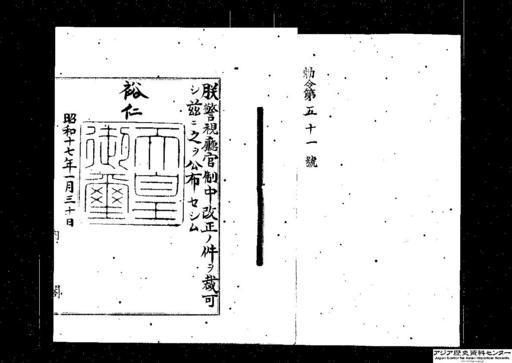 勅令第五十一號
朕警視廳官制中改正ノ件ヲ裁可
シ茲ニ之ヲ公布セシム
裕仁
天皇御璽
昭和十七年一月三十日
内閣
アジア歴史資料センター
Japan Center for Asian Historical Records